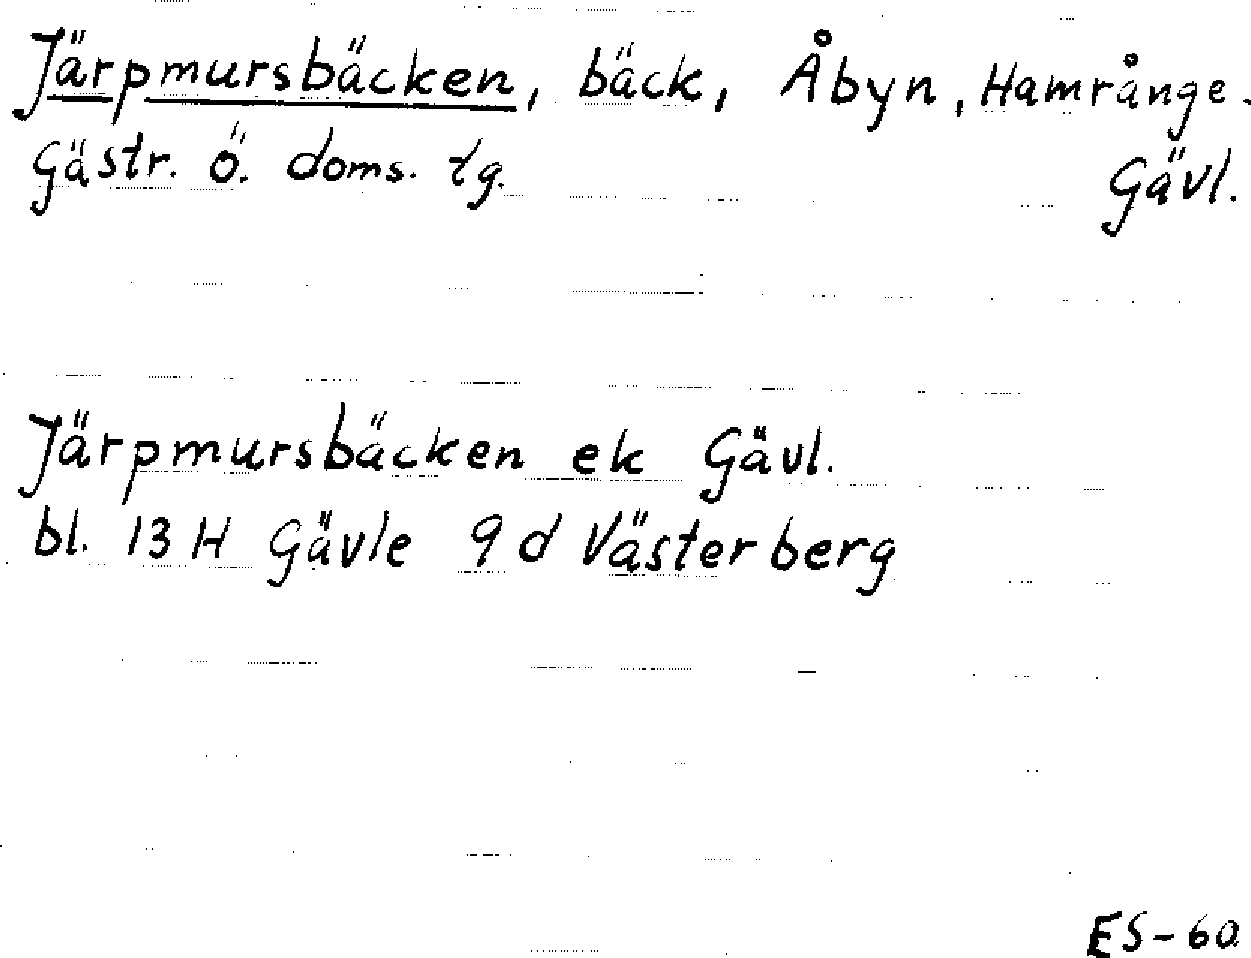 Järpmursbäcken, bäck, Åbyn, Hamrånge.
Gästr. Ö. doms. tg. Gävl.
Järpmursbäcken ek Gävl.
bl. 13 H Gävle 9 d Västerberg
ES-60